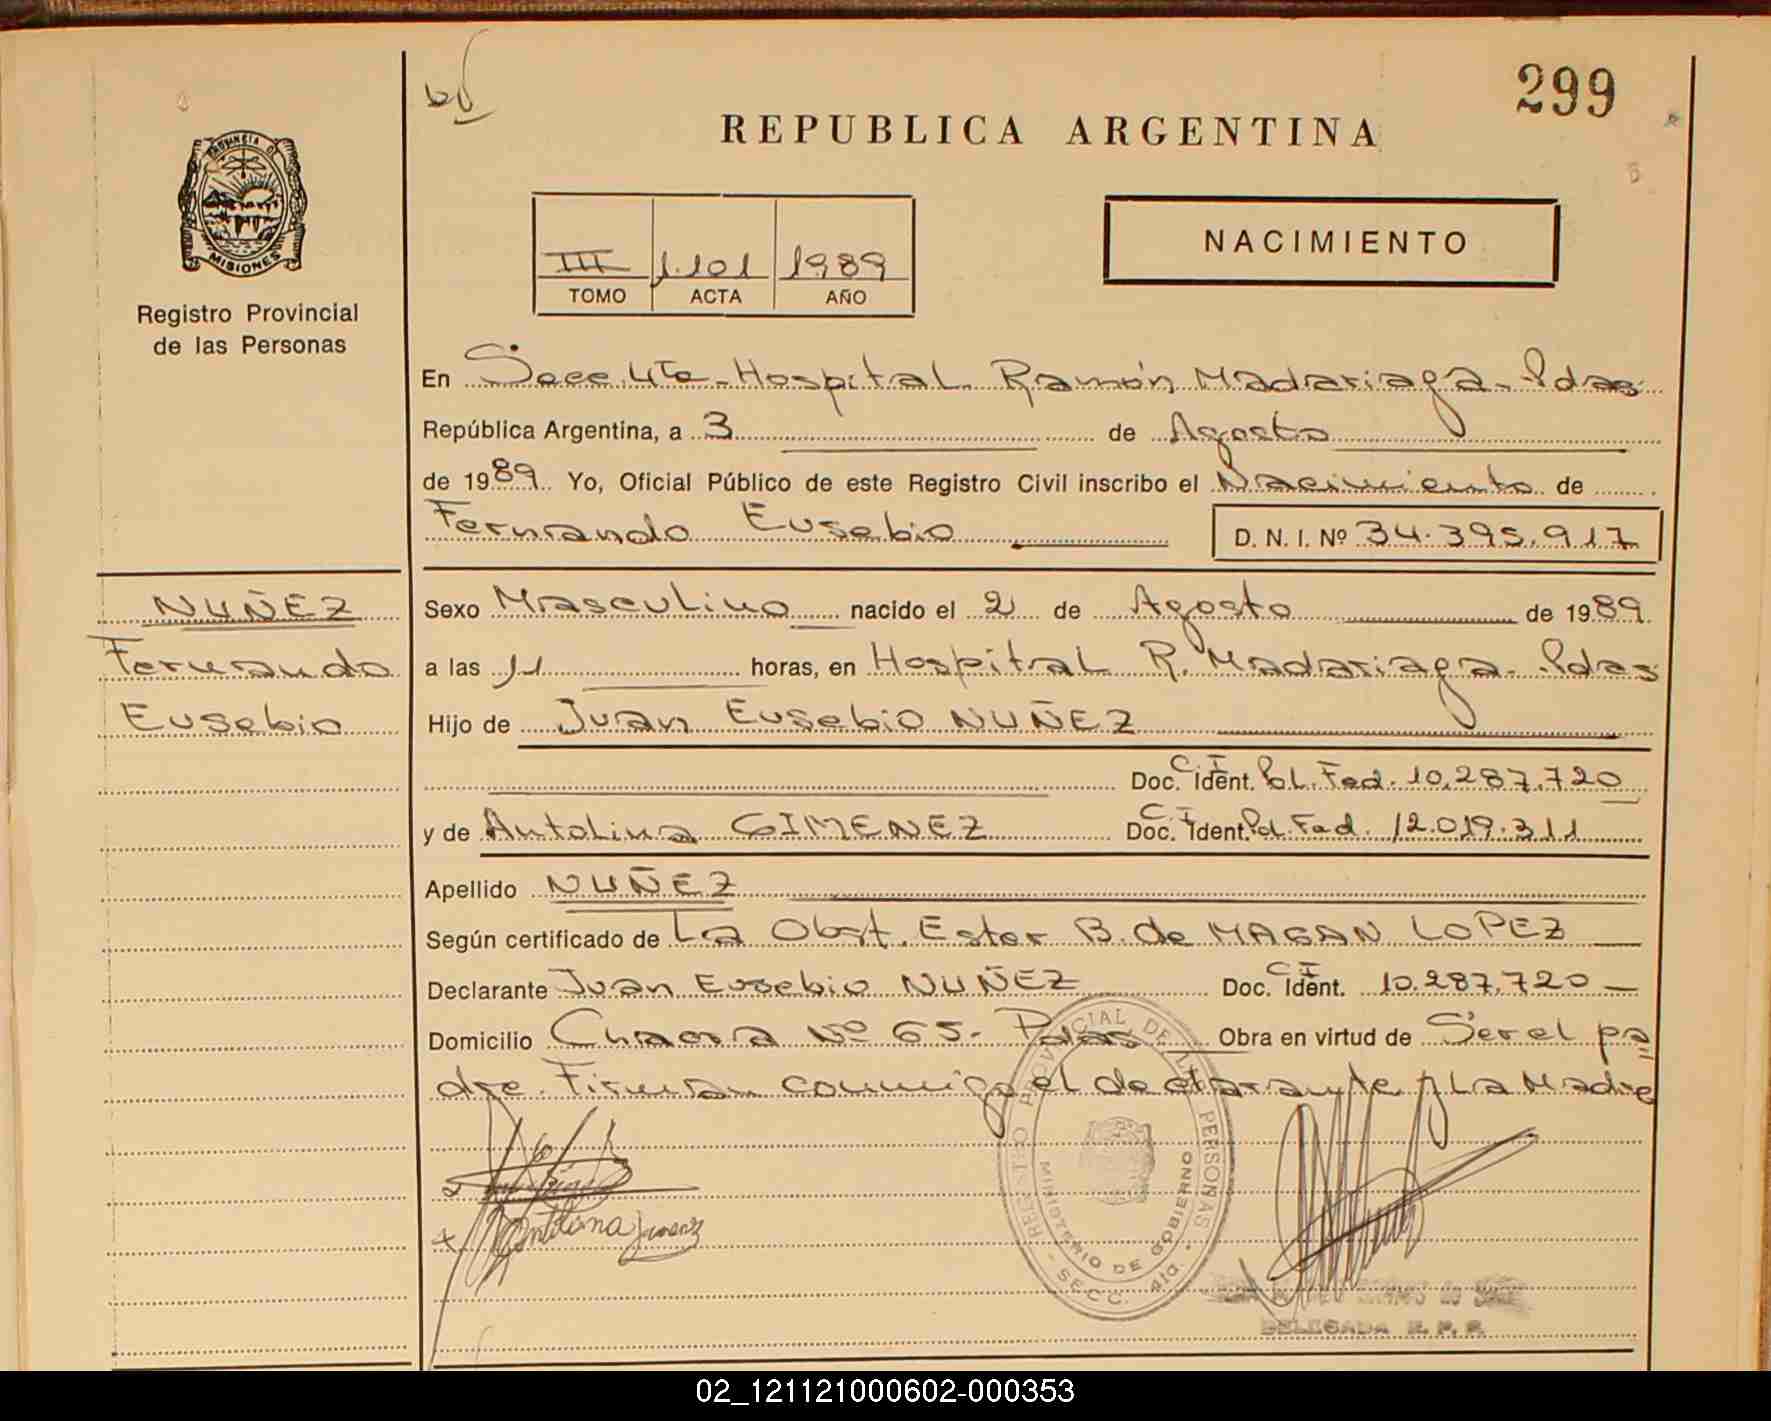 299
REPUBLICA ARGENTINA
PROVINCIA DE
MISIONES
Registro Provincial
de las Personas
III 1.101 1989
TOMO ACTA AÑO
NACIMIENTO
En Secc. 4ta - Hospital Ramón Madariaga - Pdas
República Argentina, a 3 de Agosto
de 1989 Yo, Oficial Público de este Registro Civil inscribo el Nacimiento de
Fernando Eusebio D. N. I. Nº 34.395.917
NUÑEZ
Fernando
Eusebio
Sexo Masculino nacido el 2 de Agosto de 1989
a las 11 horas, en Hospital R. Madariaga - Pdas
Hijo de Juan Eusebio NUÑEZ
Doc. C.I. Ident. Pol. Fed. 10.287.720
y de Antolina GIMENEZ Doc. C.I. Ident. Pol. Fed. 12.019.311
Apellido NUÑEZ
Según certificado de La Obst. Ester B. de MAGAN LOPEZ
Declarante Juan Eusebio NUÑEZ Doc. C.I. Ident. 10.287.720
Domicilio Chacra Nº 65 - Pdas Obra en virtud de Ser el pa
dre. Firman conmigo el declarante y La Madre
REGISTRO PROVINCIAL DE LAS PERSONAS
MINISTERIO DE GOBIERNO
SECC. 4ta.
DELEGADA R. P. P.
02_121121000602-000353